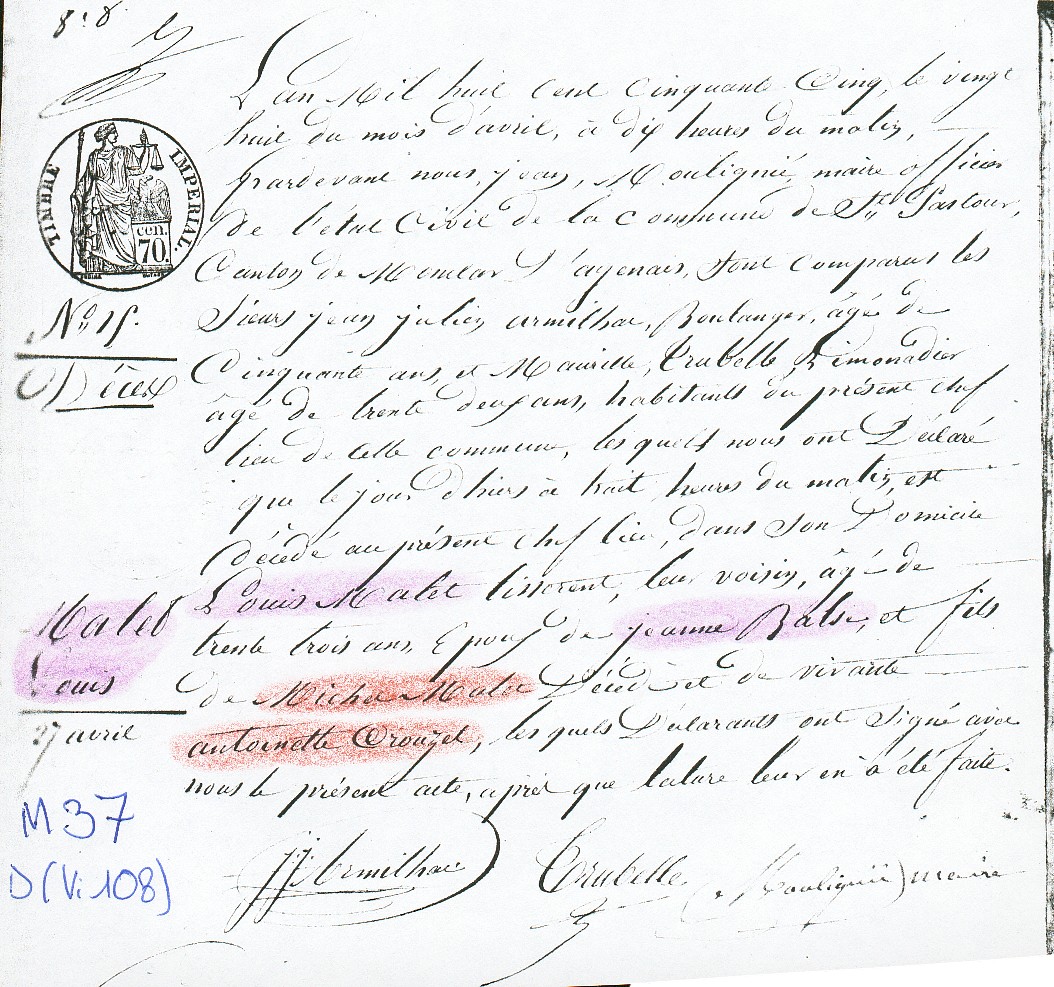 8: 8.
L'an Mil huit cent Cinquante Cinq, le vingt
huit du mois d'avril, à dix heures du matin,
Pardevant nous, jean, Mouliguié, maire officier
de l'état Civil de la Commune de St Pastour,
TIMBRE IMPERIAL.
cen. 70.
Canton de Monclar d'agenais, Sont Comparus les
No 15.
Sieurs jean julien armilhac, Boulanger, âgé de
Cinquante ans, et Maurille, Trubelle, Limonadier
Décex
âgé de trente deux ans, habitants du présent chef
lieu de cette commune, les quels nous ont Déclaré
que le jour d'hiers à huit heures du matin, est
Décédé au présent chef lieu, dans son Domicile
Louis Malet tisserent, leur voisin, âgé de
Malet
Louis
trente trois ans, Epoux de jeanne Balse, et fils
de Michel Malet Décédé et de vivante
27 avril
antoinette Crouzel, les quels Déclarants ont Signé avec
nous le présent acte, après que lature leur en à été faite.
M 37
D (Vi 108)
JJ Armilhac
Trubelle
Mouliguié maire